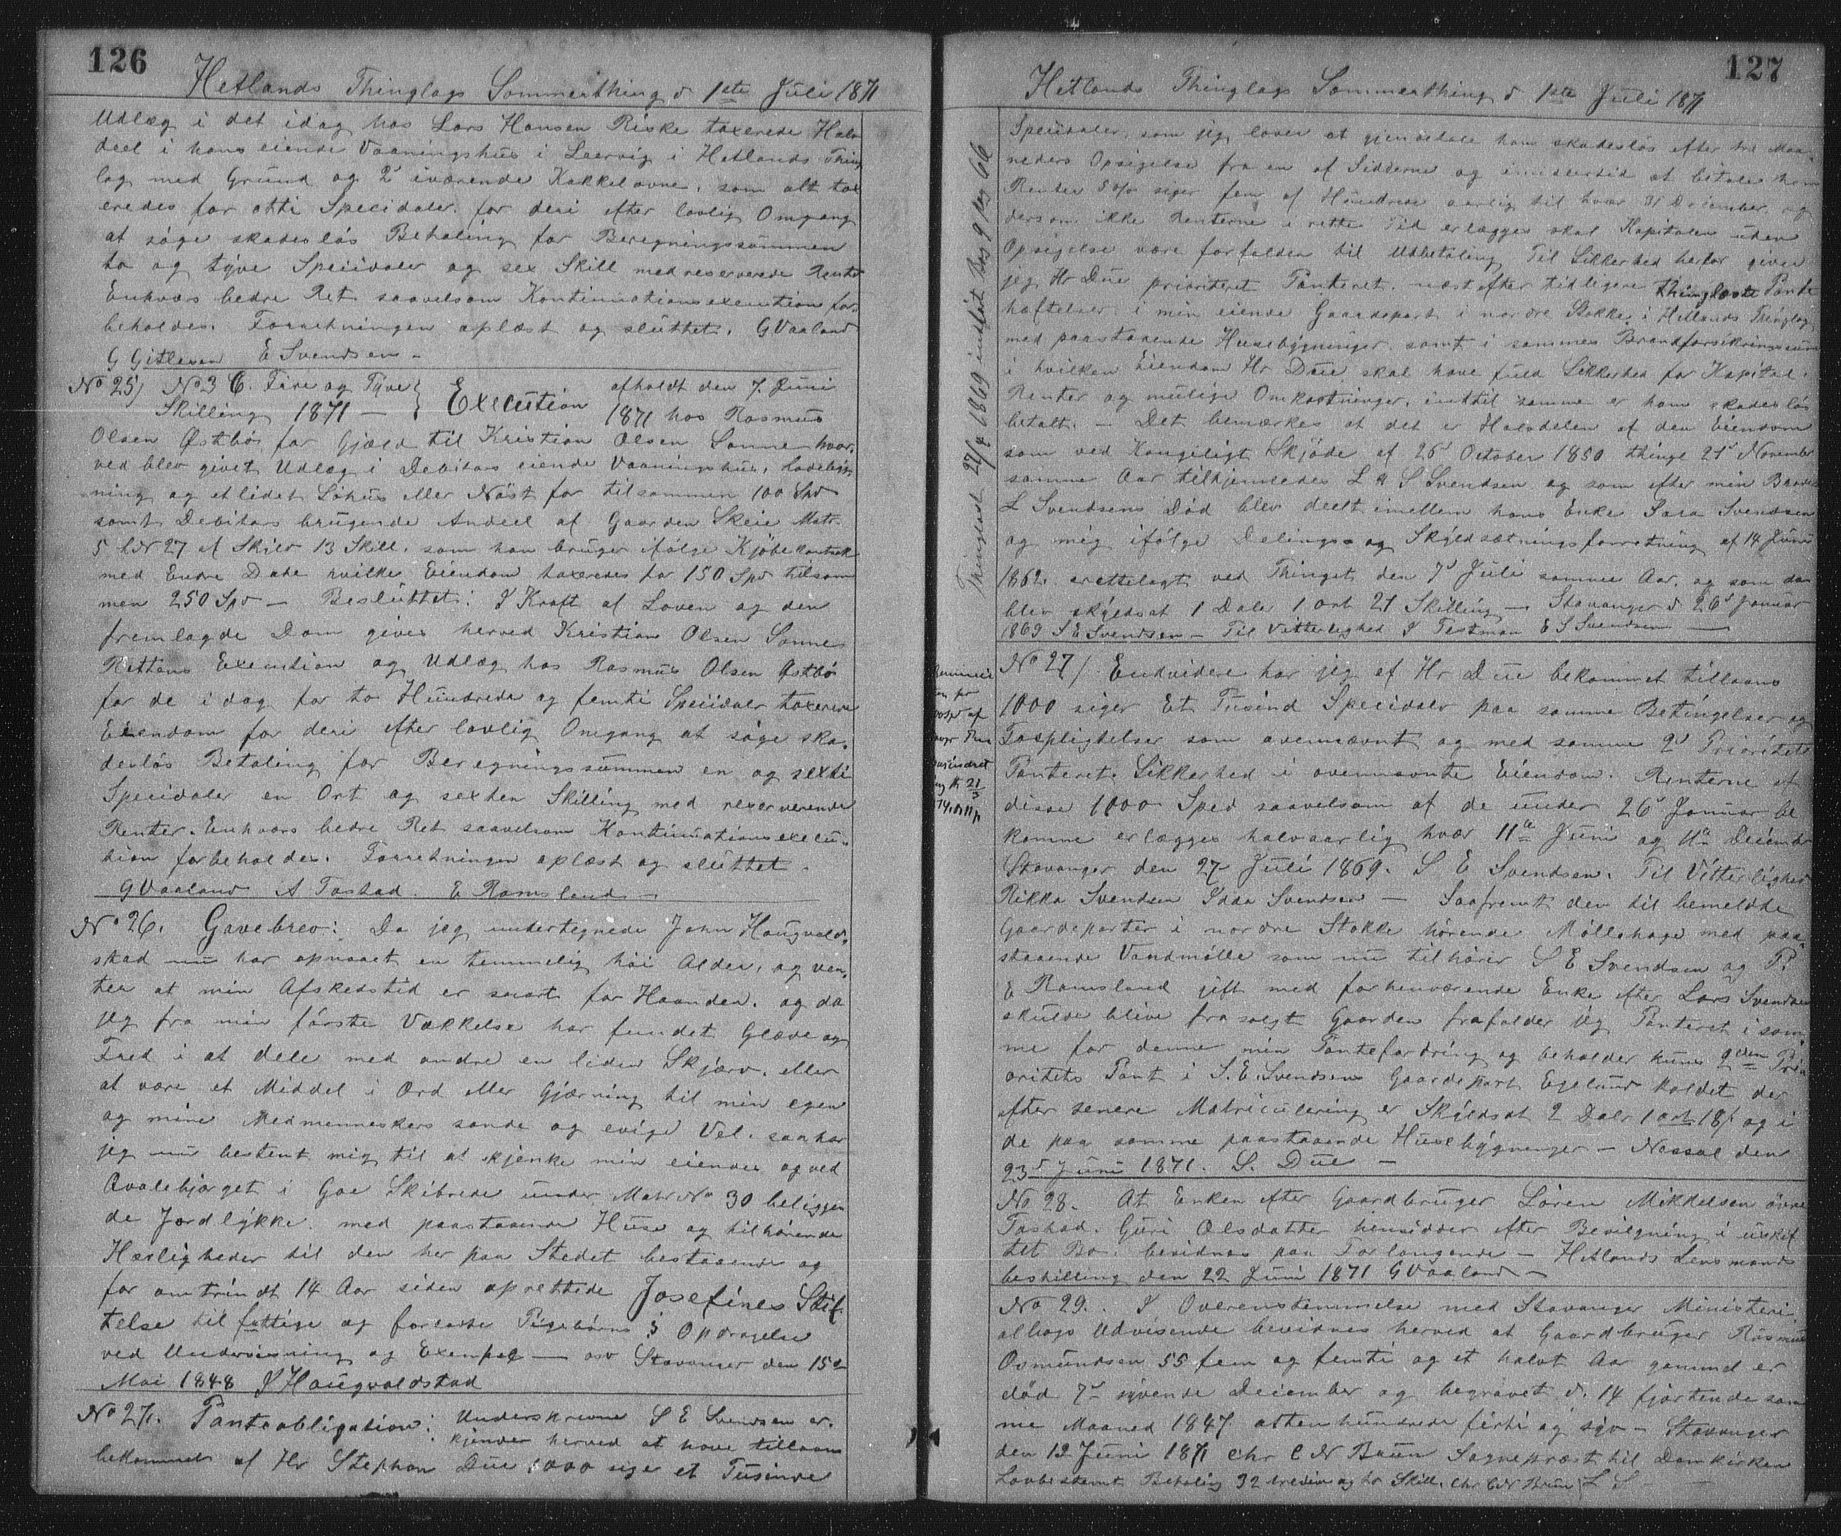 126
Hetlands Thinglags Sommerthing d 1ste Juli 1871
Udlæg i det idag hos Lars Hansen Riske taxerede Halv
deel i hans eiende Vaaningshus i Leervig i Hetlands Thing
lag med Grund og 2 iværende Kakkelovne, som alt tax
eredes for otti Specidaler, for deri efter lovlig Omgang
at søge skadesløs Betaling for Beregningssummen
to og tyve Speciedaler og sex Skill med reserverede Rente
Enhvers bedre Ret saavelsom Kontinuationsexecution for
beholdes. Forretningen oplæst og sluttet. G Vaaland
G Gitlesen E Svendsen –
No 25) No 3 C. Fire og Tyve
Skilling 1871 –
Execution
afholdt den 7. Juni
1871 hos Rasmus
Olsen Østbø for Gjæld til Kristian Olsen Sømme hvor
ved blev givet Udlæg i Debitors eiende Vaaningshus, Ladebyg
ning og et lidet Søhus eller Nøst for tilsammen 100 Spd
samt Debitors brugende Andeel af Gaarden Skeie Matr.
5 LN 27 af Skyld 13 Skill. som han bruger ifølge Kjøbekontrakt
med Endre Dahe hvilke Eiendom taxeredes for 150 Spd tilsam
men 250 Spd – Besluttet: I Kraft af Loven og den
fremlagde Dom gives herved Kristian Olsen Sømme
Rettens Execution og Udlæg hos Rasmus Olsen Østbø
for de i dag for to Hundrede og femti Speciedaler taxerede
Eiendom for deri efter lovlig Omgang at søge ska
desløs Betaling for Beregningssummen en og sexti
Speciedaler en Ort og sexten Skilling med reserverende
Renter. Enhvers bedre Ret saavelsom Kontinuationsexecu
tion forbeholdes. Forretningen oplæst og sluttet.
G Vaaland A Tastad. E Ramsland –
No 26. Gavebrev: Da jeg undertegnede John Haugvald
stad nu har opnaaet en temmelig høi Alder, og ven
ter at min Afskedstid er snart for Haanden, og da
jeg fra min første Vækkelse har fundet Glæde og
Fred i at dele med andre en liden Skjærv, eller
at være et Middel i Ord eller Gjærning til min egen
og mine Medmenneskers sande og evige Vel, saa har
jeg nu bestemt mig til at skjenke min eiende og ved
Avalsbjerget i Goe Skibrede under Matr No 30 beliggen
de Jordlykke, med paastaaende Huse og tilhørende
Herligheder til den her paa Stedet bestaaende og
for omtrindt 14 Aar siden oprettede Josefines Stif
telse til fattige og forladte Pigebørns Opdragelse
ved Underviisning og Exempel – Stavanger den 15d
Mai 1848 J Haugvaldstad
No 27. Panteobligation: Underskrevne S E Svendsen er
kjender herved at have tillaans
bekommet af Hr Stephan Due 1000 sige et Tusinde
127
Hetlands Thinglags Sommerthing d 1ste Juli 1871
Speciedaler, som jeg lover at gjenbetale ham skadesløs efter tre Maa
neders Opsigelse fra en af Sidderne og imidlertid at betale ham
Renter 5 o/o siger fem af Hundrede aarlig til hver 31 December og
dersom ikke Renterne i rette Tid erlægges skal Kapitalen uden
Opsigelse være forfalden til Udbetaling Til Sikkerhed herfor giver
jeg Hr Due prioriteret Panteret næst efter tidligere thinglæste Pante
hæftelser i min eiende Gaardepart i nordre Stokke i Hetlands Thinglag
med paastaaende Husebygninger, samt i sammes Brandforsikringssum
i hvilken Eiendom Hr Due skal have fuld Sikkerhed for Kapital,
Renter og mulige Omkostninger, indtil samme er ham skadesløs
betalt. – Det bemærkes at det er Halvdelen af den Eiendom
som ved Kongeligt Skjøde af 26d October 1850 thingl 21d November
samme Aar tilhjemledes L & S Svendsen og som efter min Broder
L Svendsens Død blev deelt imellem hans Enke Sara Svendsen
og mig ifølge Delings og Skyldsætningsforretning af 14 Juni
1862. rettelagt ved Thinget den 7d Juli samme Aar, og som da
blev skyldsat 1 Daler 1 Ort 21 Skilling – Stavanger d 26d Januar
1869 S E Svendsen – Til Vitterlighed J Testman E S Svendsen
Thinglæst 27/7 1869 indført Bog 9 pag 66
No 27/ Endvidere har jeg af Hr Due bekommet tillaans
1000 siger Et Tusind Speciedaler paa samme Betingelser og
Forpligtelser som ovennævnt og med samme 2d Prioritets
Panteret Sikkerhed i ovennævnte Eiendom. Renterne af
disse 1000 Sped saavelsom af de under 26d Januar be
komne erlægges halvaarlig hver 11te Juni og 11te Deicember
Stavanger den 27 Juli 1869. S E Svendsen. Til Vitterlighed
Rikka Svendsen Ydda Svendsen – Saafremt den til bemeldte
Gaardeparter i nordre Stokke hørende Møllehage med paa
staaende Vandmølle som nu tilhører S E Svendsen og P.
E Ramsland gift med forhenværende Enke efter Lars Svendsen
skulde blive frasolgt Gaarden frafalder jeg Panteret i sam
me for denne min Pantefordring og beholder kuns 2den Pri
oritets Pant i S. E. Svendsens Gaardepart Egelund kaldet der
efter senere Matriculering er Skyldsat 2 Daler 1 ort 18 s og i
de paa samme paastaaende Husebygninger – Nessel den
23d Juni 1871. S. Due –
No 28. At Enken efter Gaardbruger Søren Mikkelsen øvre
Tastad. Guri Olsdatter hensidder efter Bevilgning i uskif
tet Bo bevidnes paa Forlangende – Hetlands Lensmands
bestilling den 22 Juni 1871 G Vaaland –
No 29. I Overensstemmelse med Stavanger Ministeri
albogs Udvisende bevidnes herved at Gaardbruger Rasmus
Osmundsen 55 fem og femti og et halvt Aar gammel er
død 7d syvende December og begravet d. 14 fjortende sam
me Maaned 1847 atten hundrede firti og syv – Stavanger
den 12 Juni 1871 Chr C N Bruun Sognepræst til Domkirken
Lovbestemt Betaling 32 tredive og to Skill. Chr C N Brun (L S